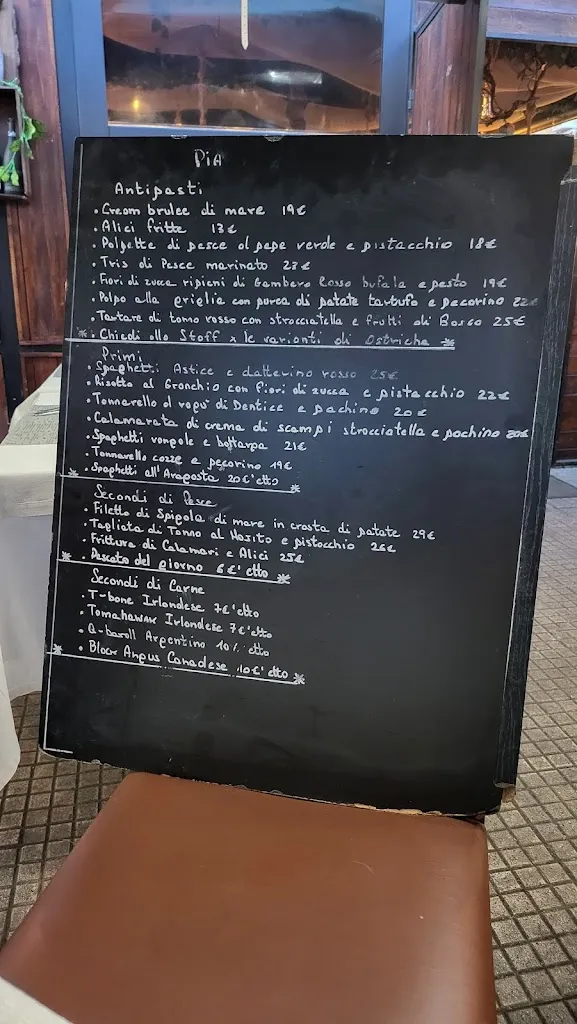 DiA
Antipasti
• Cream brulee di mare 19€
• Alici fritte 13€
• Polpette di pesce al pepe verde e pistacchio 18€
• Tris di Pesce marinato 23€
• Fiori di zucca ripieni di Gambero Rosso bufala e pesto 19€
• Polpo alla griglia con purea di patate tartufo e pecorino 22€
• Tartare di tonno rosso con stracciatella e frutti di Bosco 25€
* Chiedi allo Staff x le varianti di Ostriche *
Primi
• Spaghetti Astice e datterino rosso 25€
• Risotto al Granchio con fiori di zucca e pistacchio 22€
• Tonnarello al ragu' di Dentice e pachino 20€
• Calamarata di crema di scampi stracciatella e pachino
• Spaghetti vongole e bottarga 21€
• Tonnarello cozze e pecorino 19€
* • Spaghetti all'Aragosta 20€'etto *
Secondi di Pesce
• Filetto di Spigola di mare in crosta di patate 29€
• Tagliata di Tonno al Mojito e pistacchio 26€
• Frittura di Calamari e Alici 25€
* • Pescato del giorno 6€'etto *
Secondi di Carne
• T-bone Irlandese 7€'etto
• Tomahawk Irlandese 7€'etto
• Argentino 10€ etto
* • Black Angus Canadese 10€'etto *